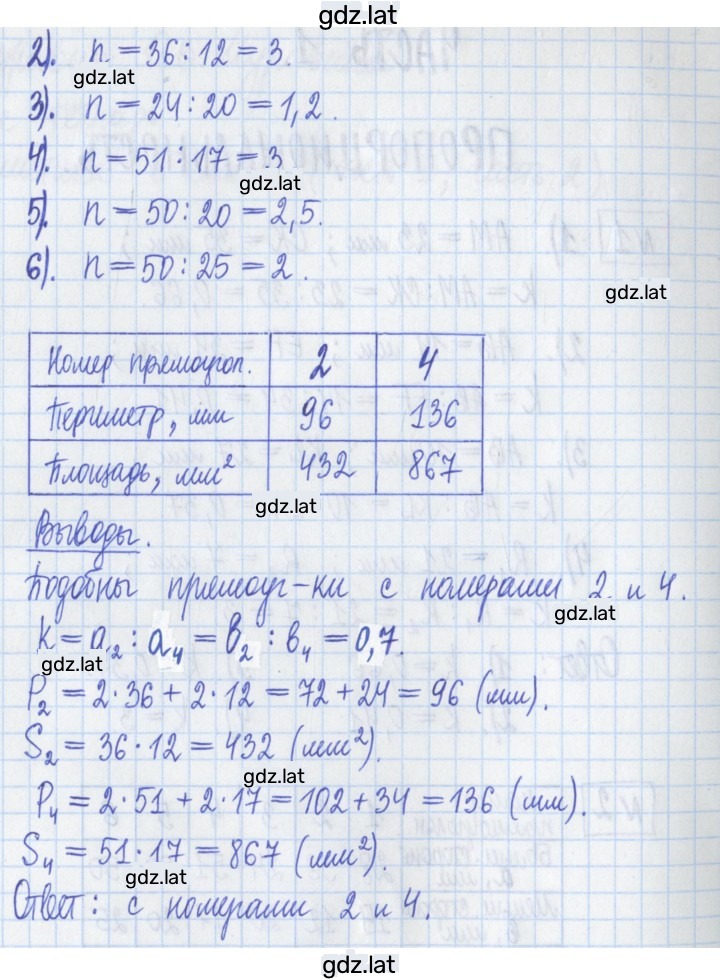 gdz.lat
2). n = 36 : 12 = 3.
gdz.lat
3). n = 24 : 20 = 1,2.
4). n = 51 : 17 = 3
gdz.lat
5). n = 50 : 20 = 2,5.
6). n = 50 : 25 = 2.
gdz.lat
Номер прямоугол. 2 4
Периметр, мм 96 136
Площадь, мм² 432 867
gdz.lat
Выводы.
Подобны прямоуг-ки с номерами 2 и 4.
gdz.lat
k = a₂ : a₄ = b₂ : b₄ = 0,7.
gdz.lat
P₂ = 2·36 + 2·12 = 72 + 24 = 96 (мм).
S₂ = 36·12 = 432 (мм²).
gdz.lat
P₄ = 2·51 + 2·17 = 102 + 34 = 136 (мм).
S₄ = 51·17 = 867 (мм²).
gdz.lat
Ответ: с номерами 2 и 4.
gdz.lat